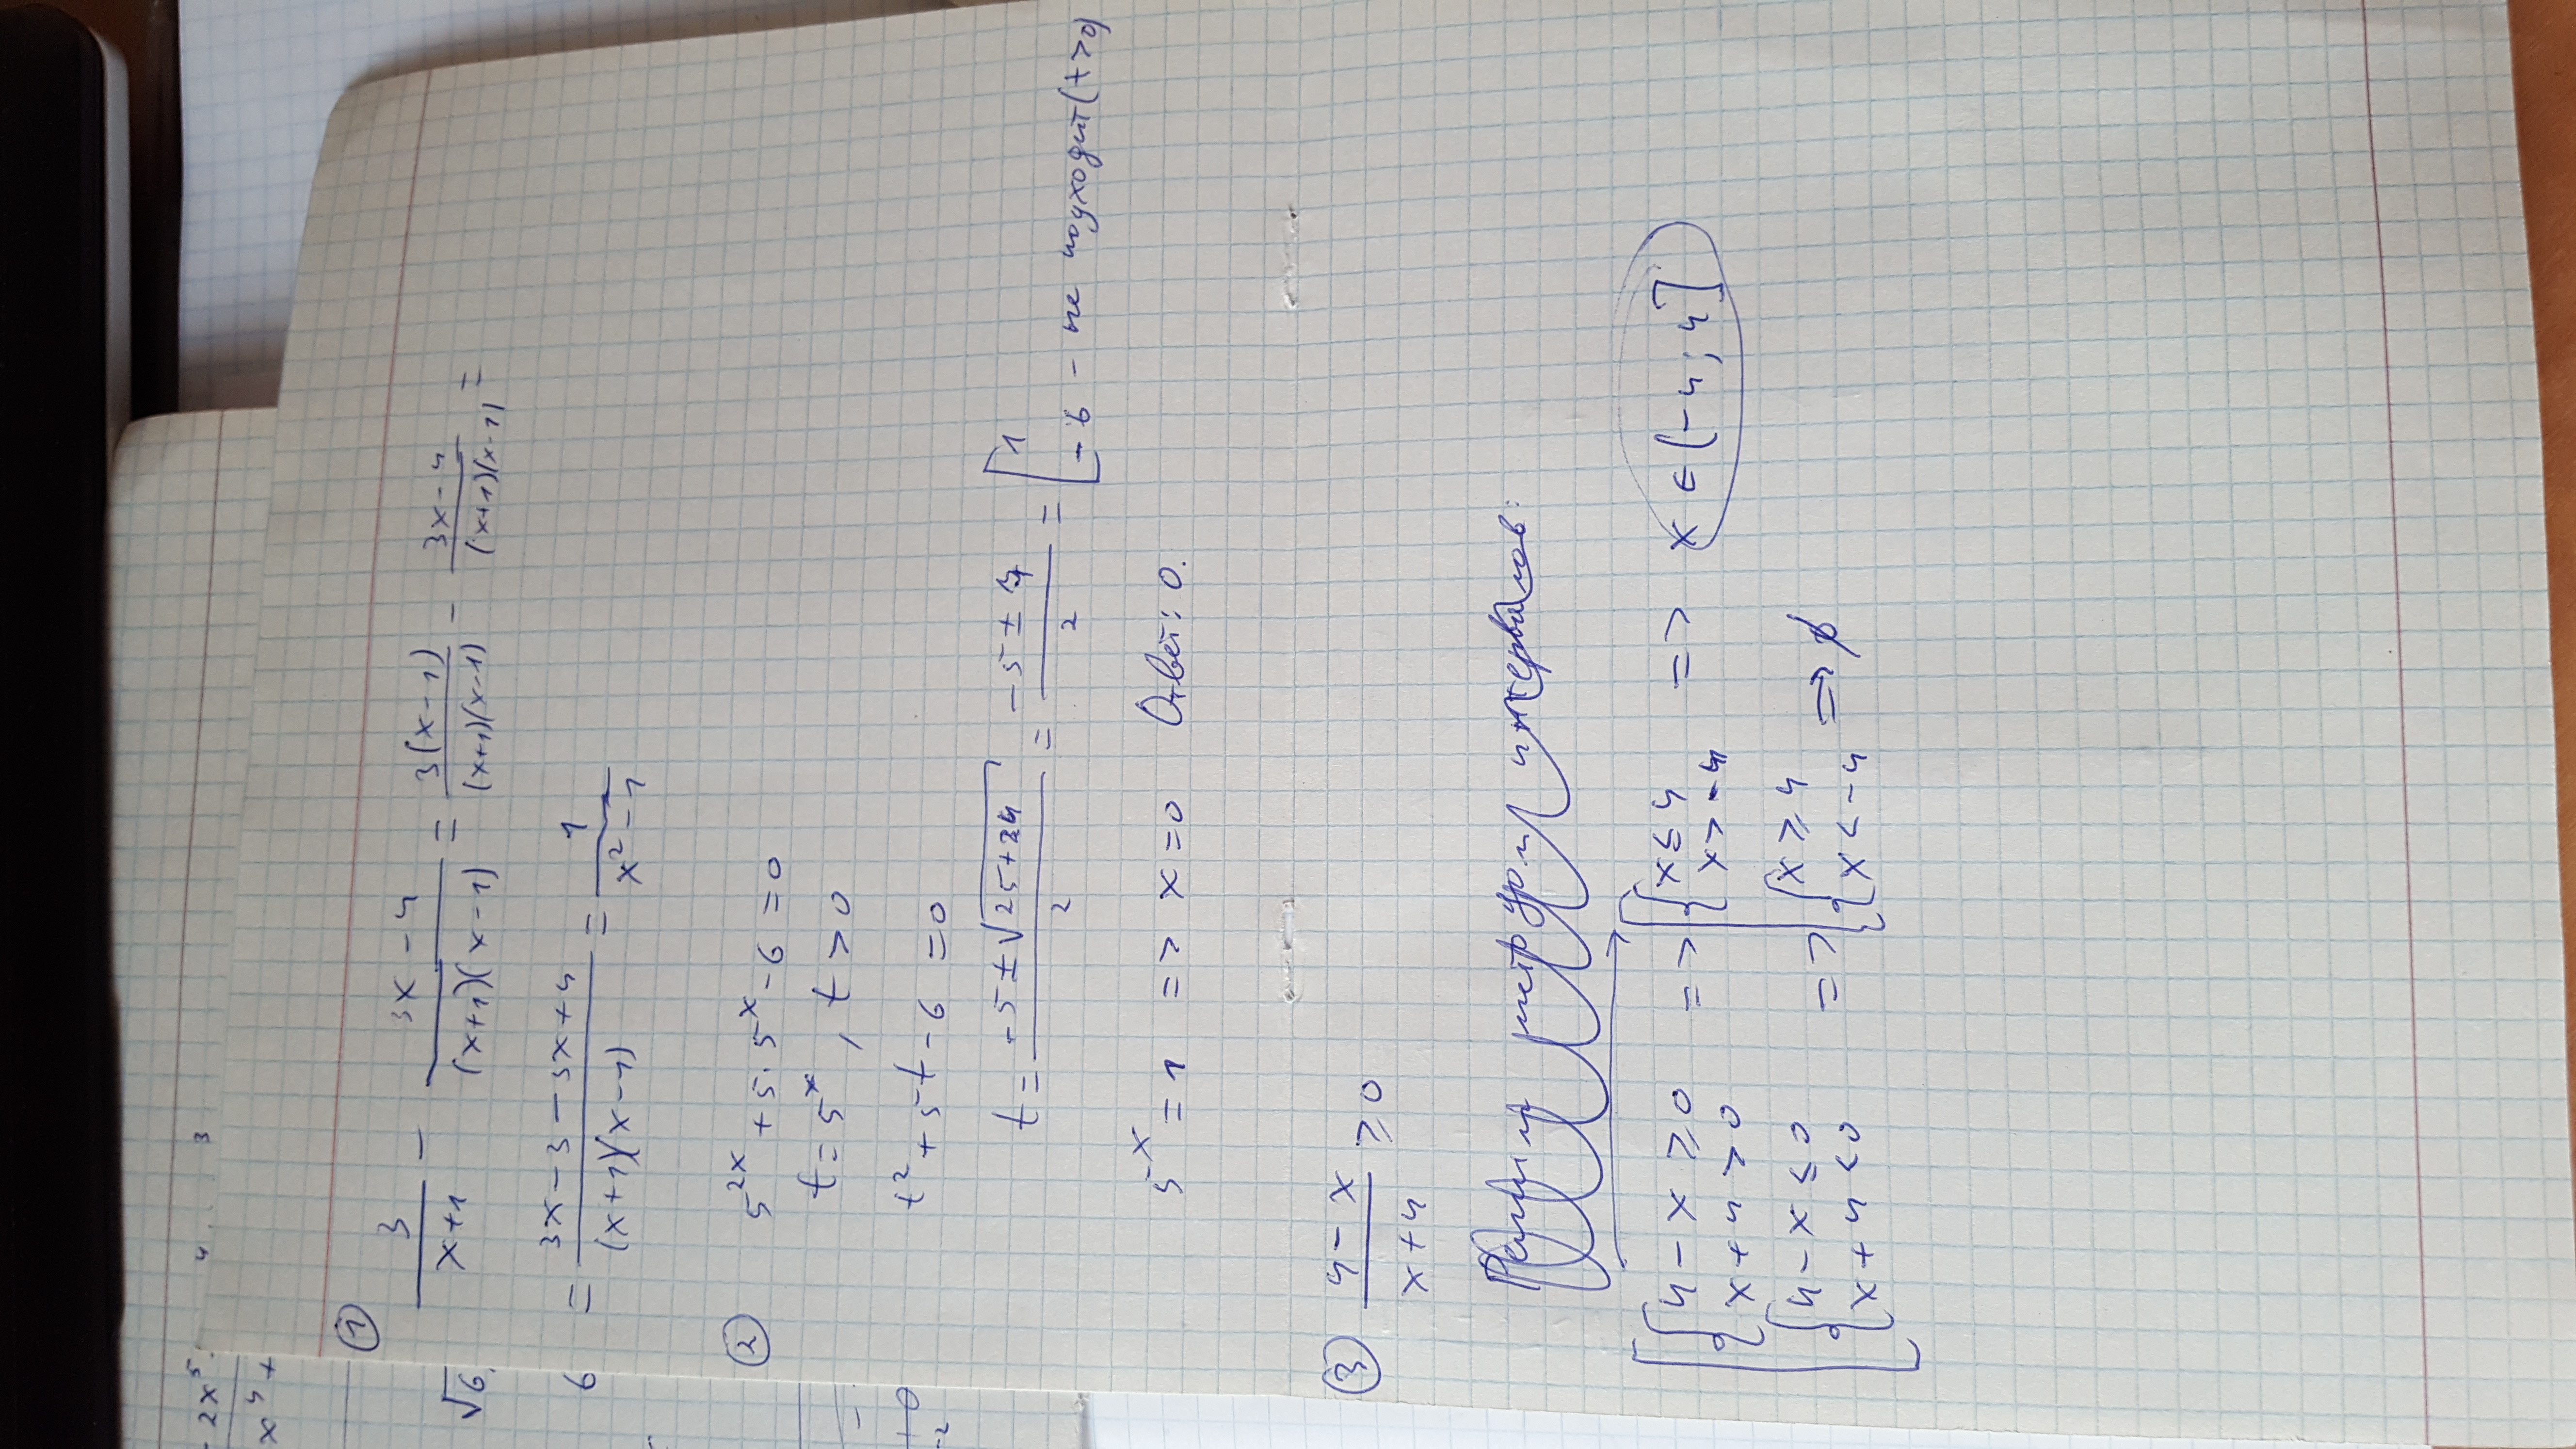 ① 3/(x+1) − (3x−4)/((x+1)(x−1)) = 3(x−1)/((x+1)(x−1)) − (3x−4)/((x+1)(x−1)) =
= (3x−3−3x+4)/((x+1)(x−1)) = 1/(x²−1)
② 5^(2x) + 5·5^x − 6 = 0
t = 5^x, t > 0
t² + 5t − 6 = 0
t = (−5±√(25+24))/2 = (−5±7)/2 = [1
−6 − не подходит (t>0)
5^x = 1 => x = 0 Ответ: 0.
③ (4−x)/(x+4) ≥ 0
интервалов:
[{4−x ≥ 0 => [{x ≤ 4 => x ∈ (−4; 4]
x+4 > 0 x > −4
{4−x ≤ 0 => {x ≥ 4 => ∅
x+4 < 0 x < −4
√6
6
2x⁵
x⁴ +